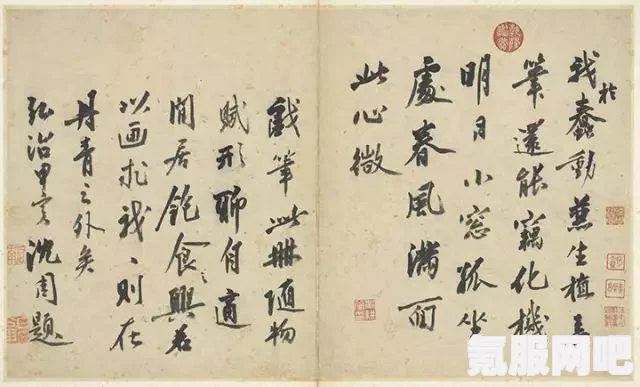 我於蠢動兼生植弄
筆還能竊化機
明月小窗孤坐
處春風滿面
此心微
戲筆此冊隨物
賦形聊自適
閒居飽食之興若
以画求我、則在
丹青之外矣
弘治甲寅沈周題
氪服网吧